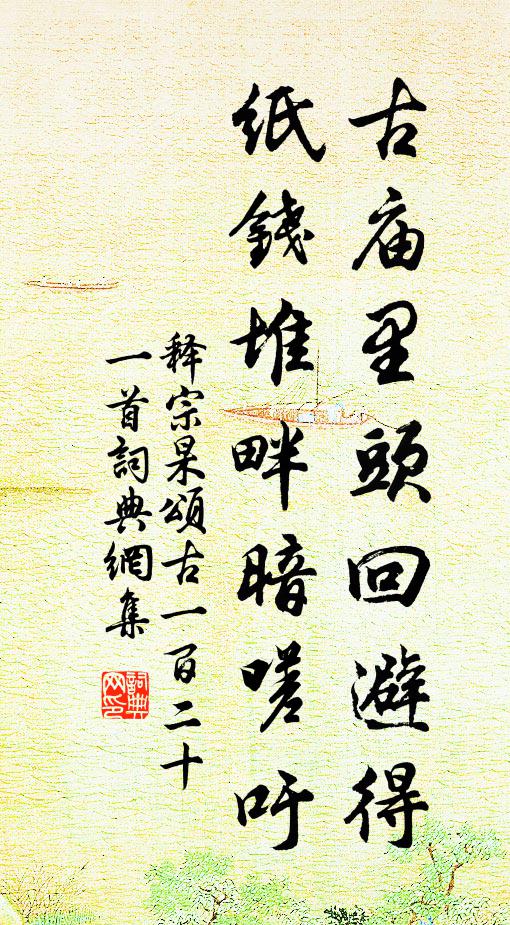 古庙里頭回避得
紙錢堆畔暗嗟吁
释宗杲頌古一百二十
一首詞典網集
詞典
网印